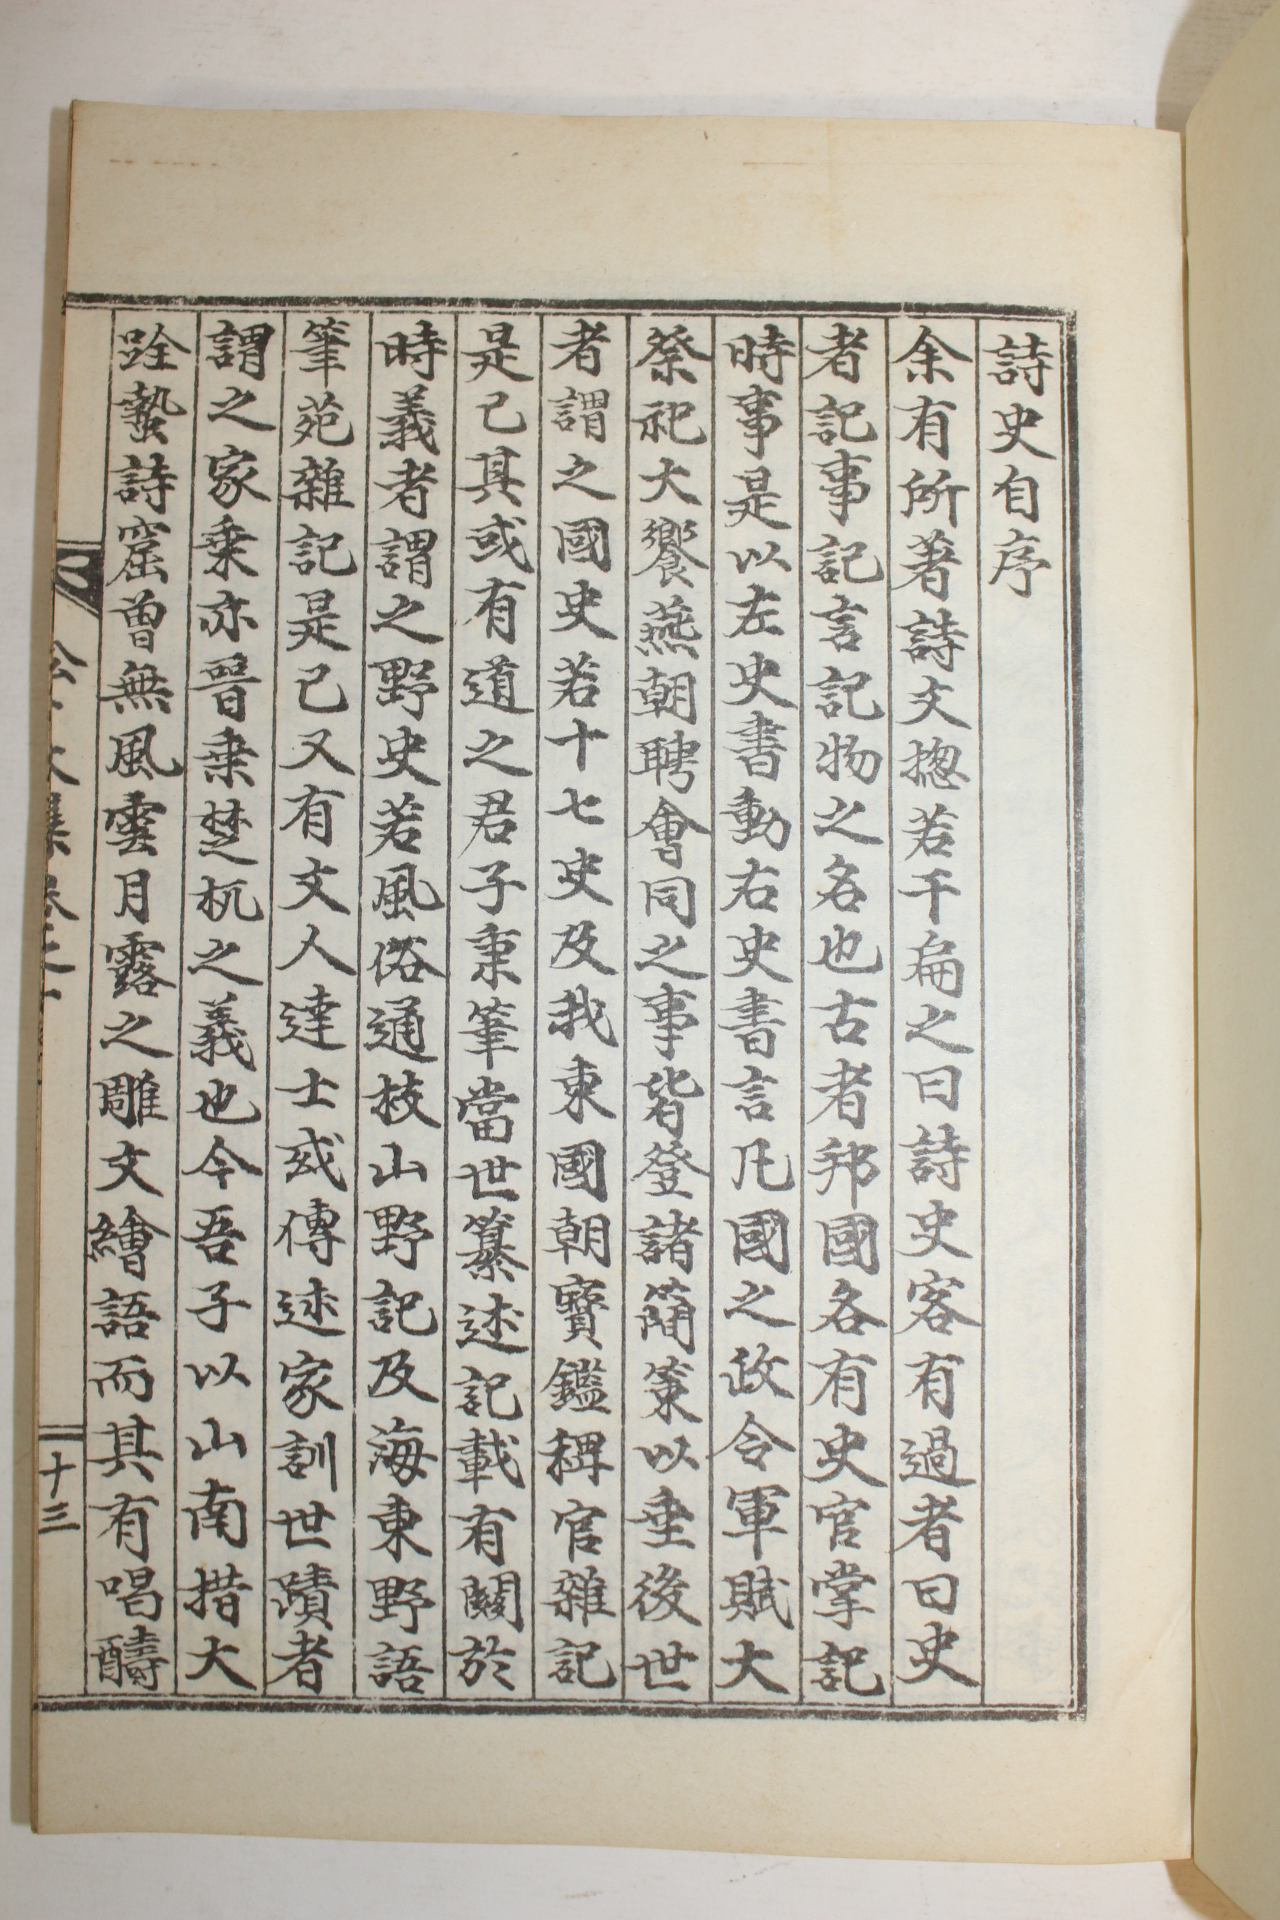 詩史自序
余有所著詩文摠若干扁之曰詩史客有過者曰史
者記事記言記物之名也古者邦國各有史官掌記
時事是以左史書動右史書言凡國之政令軍賦大
祭祀大饗燕朝聘會同之事皆登諸簡策以垂後世
者謂之國史若十七史及我東國朝寶鑑稗官雜記
是已其或有道之君子秉筆當世纂述記載有關於
時義者謂之野史若風俗通枝山野記及海東野語
筆苑雜記是已又有文人達士或傳述家訓世蹟者
謂之家乘亦晉乘楚杌之義也今吾子以山南措大
跧蟄詩窟曾無風雲月露之雕文繪語而其有唱酬
文集卷之
十三